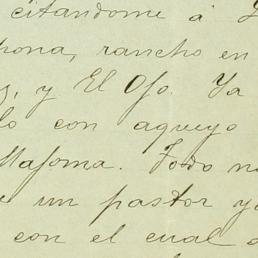 citandome á
rancho en
y El Oso. Ya
lo con aqueyo
Masoma. Todo
un pastor y
con el cual